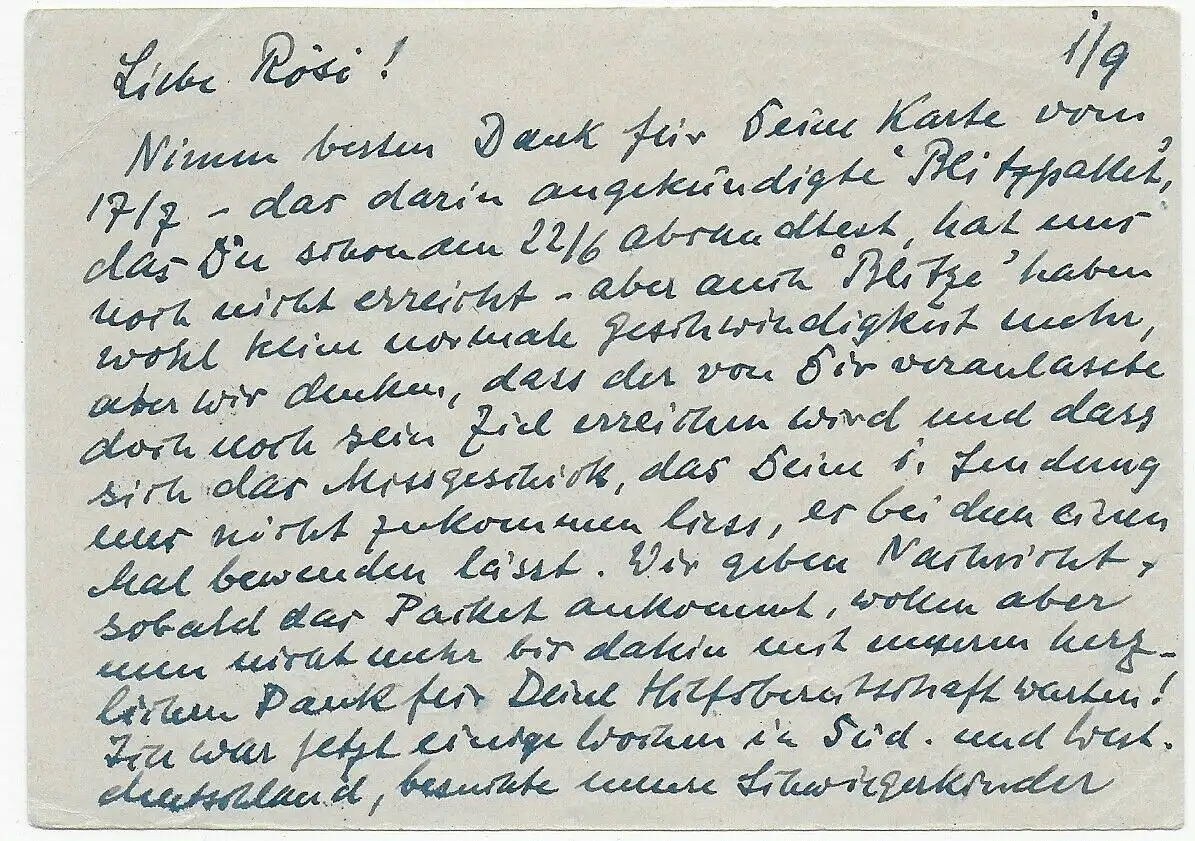 1/9
Liebe Rösi!
Nimm besten Dank für Deine Karte vom
17/7 – das darin angekündigte "Blitzpaket",
das Du schon am 22/6 absandtest, hat uns
noch nicht erreicht – aber auch "Blitze" haben
wohl keine normale Geschwindigkeit mehr,
aber wir denken, dass der von Dir veranlasste
doch noch sein Ziel erreichen wird und dass
sich das Missgeschick, das Deine 1. Sendung
uns nicht zukommen liess, es bei dem einen
Mal bewenden lässt. Wir geben Nachricht,
sobald das Packet ankommt, wollen aber
nun nicht mehr bis dahin mit unserm herz-
lichen Dank für Deine Hilfsbereitschaft warten!
Ich war jetzt einige Wochen in Süd- und West-
deutschland, besuchte unsere Schwiegerkinder